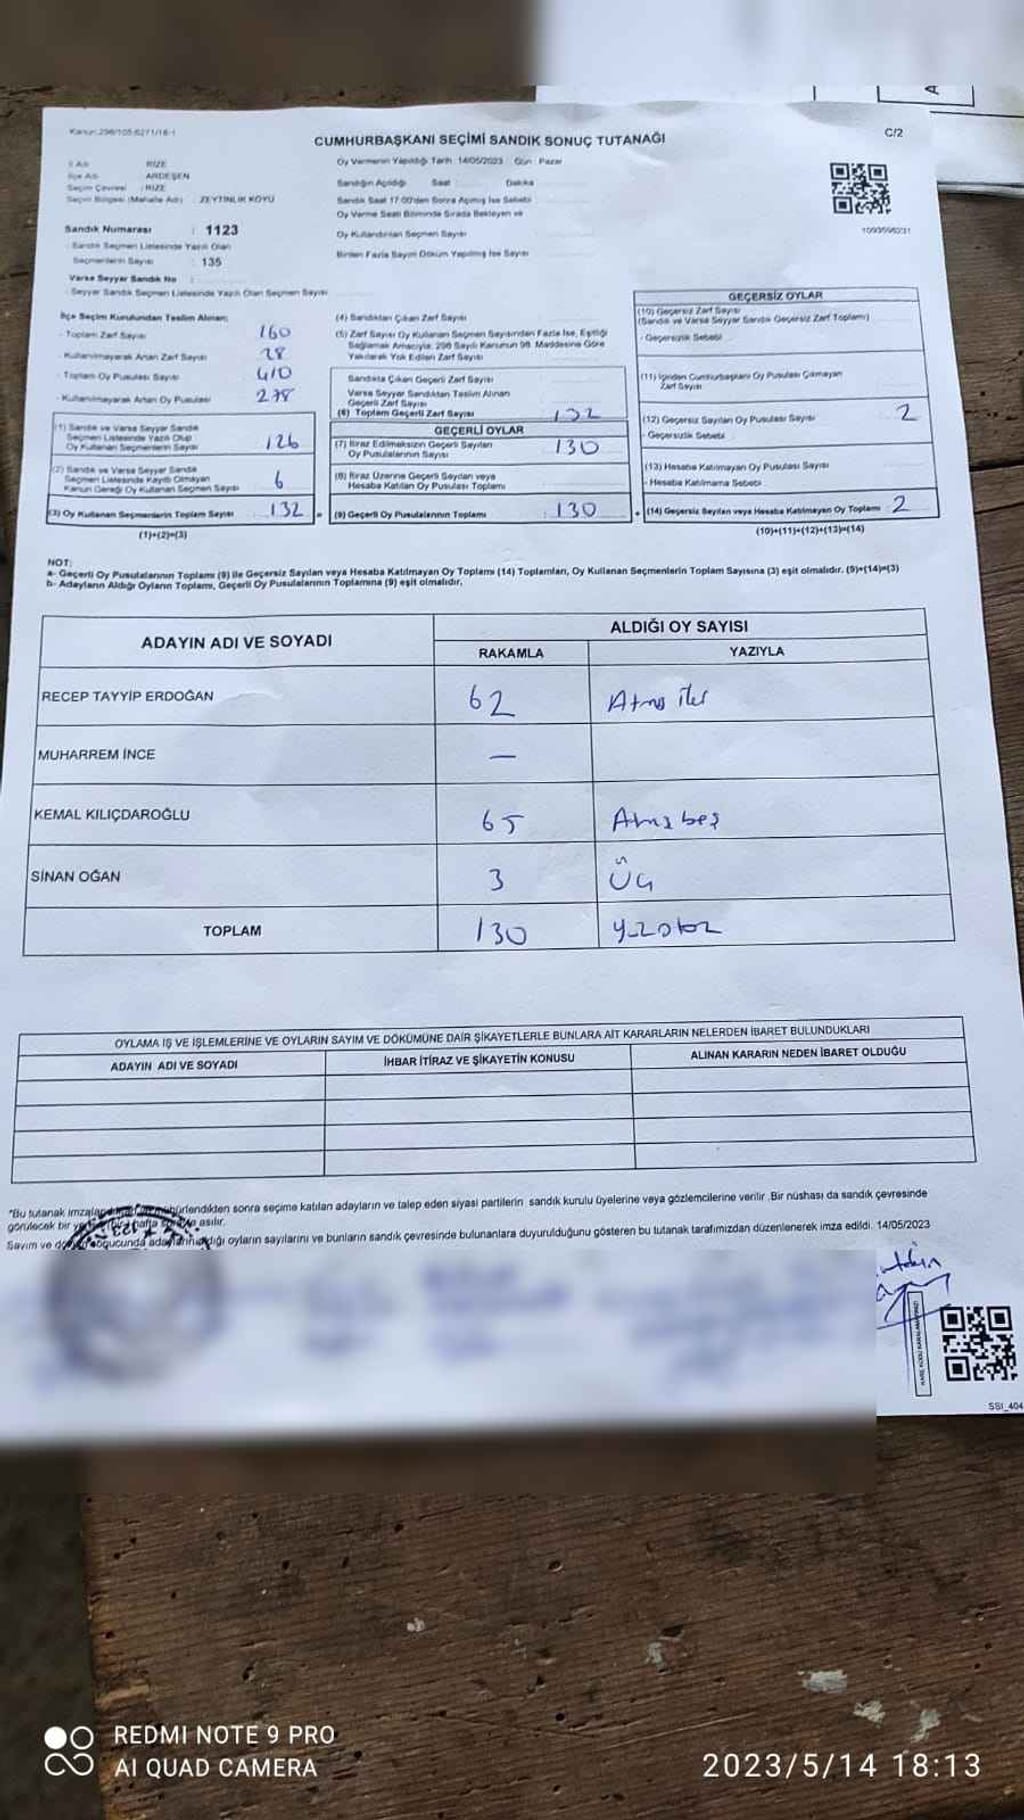 C/2
CUMHURBAŞKANI SEÇİMİ SANDIK SONUÇ TUTANAĞI
Oy Vermenin Yapıldığı Tarih 14/05/2023 Gün Pazar
İl Adı RİZE
İlçe Adı ARDEŞEN
Seçim Çevresi : RİZE
Seçim Bölgesi (Mahalle Adı) ZEYTİNLİK KÖYÜ
Sandık Numarası : 1123
Sandık Seçmen Listesinde Yazılı Olan
Seçmenlerin Sayısı : 135
Varsa Seyyar Sandık No
Seyyar Sandık Seçmen Listesinde Yazılı Olan Seçmen Sayısı
Sandığın Açıldığı Saat Dakika
Sandık Saat 17.00'den Sonra Açılmış İse Sebebi
Oy Verme Saati Bitiminde Sırada Bekleyen ve
Oy Kullandırılan Seçmen Sayısı
Birden Fazla Sayım Döküm Yapılmış İse Sayısı
İlçe Seçim Kurulundan Teslim Alınan;
- Toplam Zarf Sayısı 160
- Kullanılmayarak Artan Zarf Sayısı 28
- Toplam Oy Pusulası Sayısı 410
- Kullanılmayarak Artan Oy Pusulası 278
(1) Sandık ve Varsa Seyyar Sandık
Seçmen Listesinde Yazılı Olup
Oy Kullanan Seçmenlerin Sayısı 126
(2) Sandık ve Varsa Seyyar Sandık
Seçmen Listesinde Kayıtlı Olmayan
Kanun Gereği Oy Kullanan Seçmen Sayısı 6
(3) Oy Kullanan Seçmenlerin Toplam Sayısı 132
(1)+(2)=(3)
(4) Sandıktan Çıkan Zarf Sayısı
(5) Zarf Sayısı Oy Kullanan Seçmen Sayısından Fazla İse, Eşitliği
Sağlamak Amacıyla, 298 Sayılı Kanunun 98. Maddesine Göre
Yakılarak Yok Edilen Zarf Sayısı
Sandıkta Çıkan Geçerli Zarf Sayısı
Varsa Seyyar Sandıktan Teslim Alınan
Geçerli Zarf Sayısı
(6) Toplam Geçerli Zarf Sayısı 132
GEÇERLİ OYLAR
(7) İtiraz Edilmeksizin Geçerli Sayılan
Oy Pusulalarının Sayısı 130
(8) İtiraz Üzerine Geçerli Sayılan veya
Hesaba Katılan Oy Pusulası Toplamı
= (9) Geçerli Oy Pusulalarının Toplamı 130
GEÇERSİZ OYLAR
(10) Geçersiz Zarf Sayısı
(Sandık ve Varsa Seyyar Sandık Geçersiz Zarf Toplamı)
- Geçersizlik Sebebi
(11) İçinden Cumhurbaşkanı Oy Pusulası Çıkmayan
Zarf Sayısı
(12) Geçersiz Sayılan Oy Pusulası Sayısı 2
- Geçersizlik Sebebi
(13) Hesaba Katılmayan Oy Pusulası Sayısı
- Hesaba Katılmama Sebebi
+ (14) Geçersiz Sayılan veya Hesaba Katılmayan Oy Toplamı 2
(10)+(11)+(12)+(13)=(14)
NOT:
a- Geçerli Oy Pusulalarının Toplamı (9) ile Geçersiz Sayılan veya Hesaba Katılmayan Oy Toplamı (14) Toplamları, Oy Kullanan Seçmenlerin Toplam Sayısına (3) eşit olmalıdır. (9)+(14)=(3)
b- Adayların Aldığı Oyların Toplamı, Geçerli Oy Pusulalarının Toplamına (9) eşit olmalıdır.
ADAYIN ADI VE SOYADI
ALDIĞI OY SAYISI
RAKAMLA YAZIYLA
RECEP TAYYİP ERDOĞAN 62
MUHARREM İNCE —
KEMAL KILIÇDAROĞLU 65 Atmışbeş
SİNAN OĞAN 3 Üç
TOPLAM 130 yüzotuz
OYLAMA İŞ VE İŞLEMLERİNE VE OYLARIN SAYIM VE DÖKÜMÜNE DAİR ŞİKAYETLERLE BUNLARA AİT KARARLARIN NELERDEN İBARET BULUNDUKLARI
ADAYIN ADI VE SOYADI İHBAR İTİRAZ VE ŞİKAYETİN KONUSU ALINAN KARARIN NEDEN İBARET OLDUĞU
*Bu tutanak mühürlendikten sonra seçime katılan adayların ve talep eden siyasi partilerin sandık kurulu üyelerine veya gözlemcilerine verilir. Bir nüshası da sandık çevresinde
görülecek bir hafta asılır.
Sayım ve oyların sayılarını ve bunların sandık çevresinde bulunanlara duyurulduğunu gösteren bu tutanak tarafımızdan düzenlenerek imza edildi. 14/05/2023
SSİ_404
REDMI NOTE 9 PRO
AI QUAD CAMERA
2023/5/14 18:13